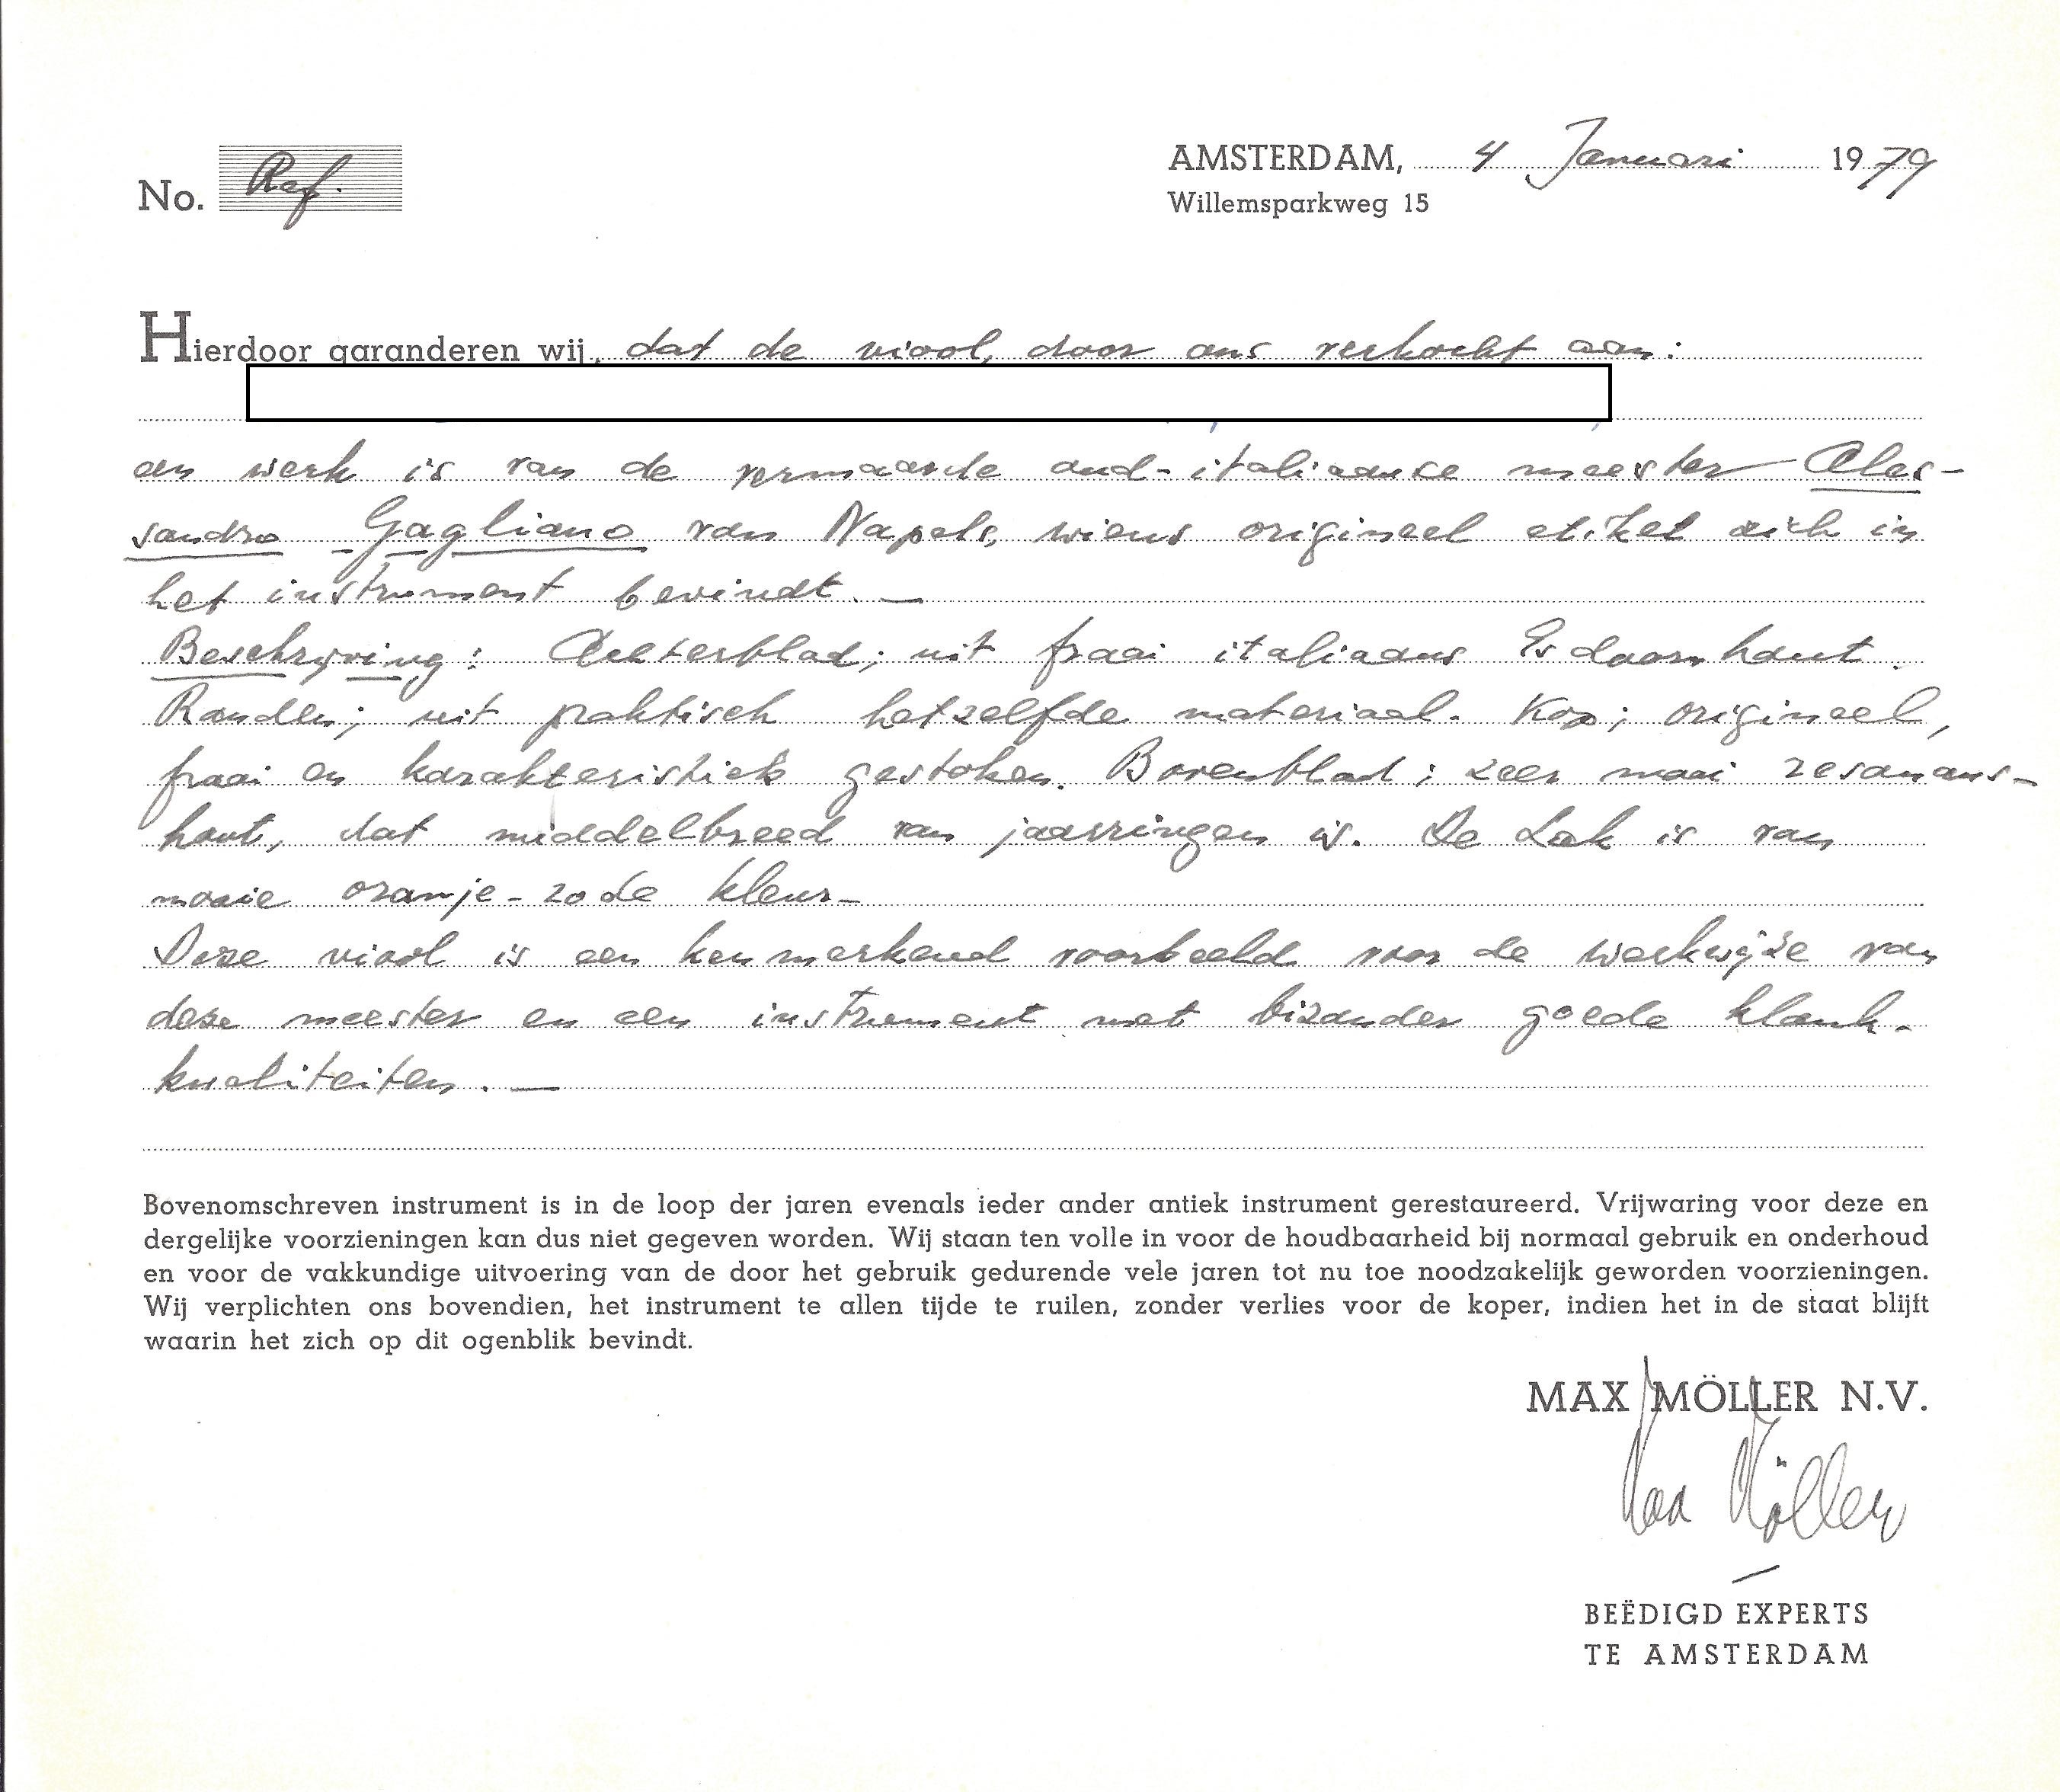 No. Ref.
AMSTERDAM, 4 Januari 1979
Willemsparkweg 15
Hierdoor garanderen wij, dat de viool, door ons verkocht aan:
een werk is van de vermaarde oud-italiaanse meester Ales-
sandro Gagliano van Napels, wiens origineel etiket zich in
het instrument bevindt. —
Beschrijving: Achterblad; uit fraai italiaans Esdoornhout.
Randen; uit praktisch hetzelfde materiaal. Kop; origineel,
fraai en karakteristiek gestoken. Bovenblad; zeer mooi resonans-
hout, dat middelbreed van jaarringen is. De Lak is van
mooie oranje-rode kleur—
Deze viool is een kenmerkend voorbeeld voor de werkwijze van
deze meester en een instrument met bizonder goede klank-
kwaliteiten. —
Bovenomschreven instrument is in de loop der jaren evenals ieder ander antiek instrument gerestaureerd. Vrijwaring voor deze en
dergelijke voorzieningen kan dus niet gegeven worden. Wij staan ten volle in voor de houdbaarheid bij normaal gebruik en onderhoud
en voor de vakkundige uitvoering van de door het gebruik gedurende vele jaren tot nu toe noodzakelijk geworden voorzieningen.
Wij verplichten ons bovendien, het instrument te allen tijde te ruilen, zonder verlies voor de koper, indien het in de staat blijft
waarin het zich op dit ogenblik bevindt.
MAX MÖLLER N.V.
Max Möller
BEËDIGD EXPERTS
TE AMSTERDAM